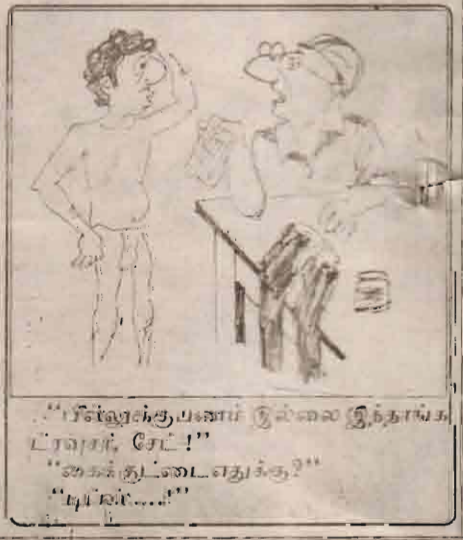 "பில்லுக்கு பணம் இல்லை இந்தாங்க
ட்ரவுசர், சேட்!"
"கைக்குட்டை எதுக்கு?"
"டிப்ஸ்....!"